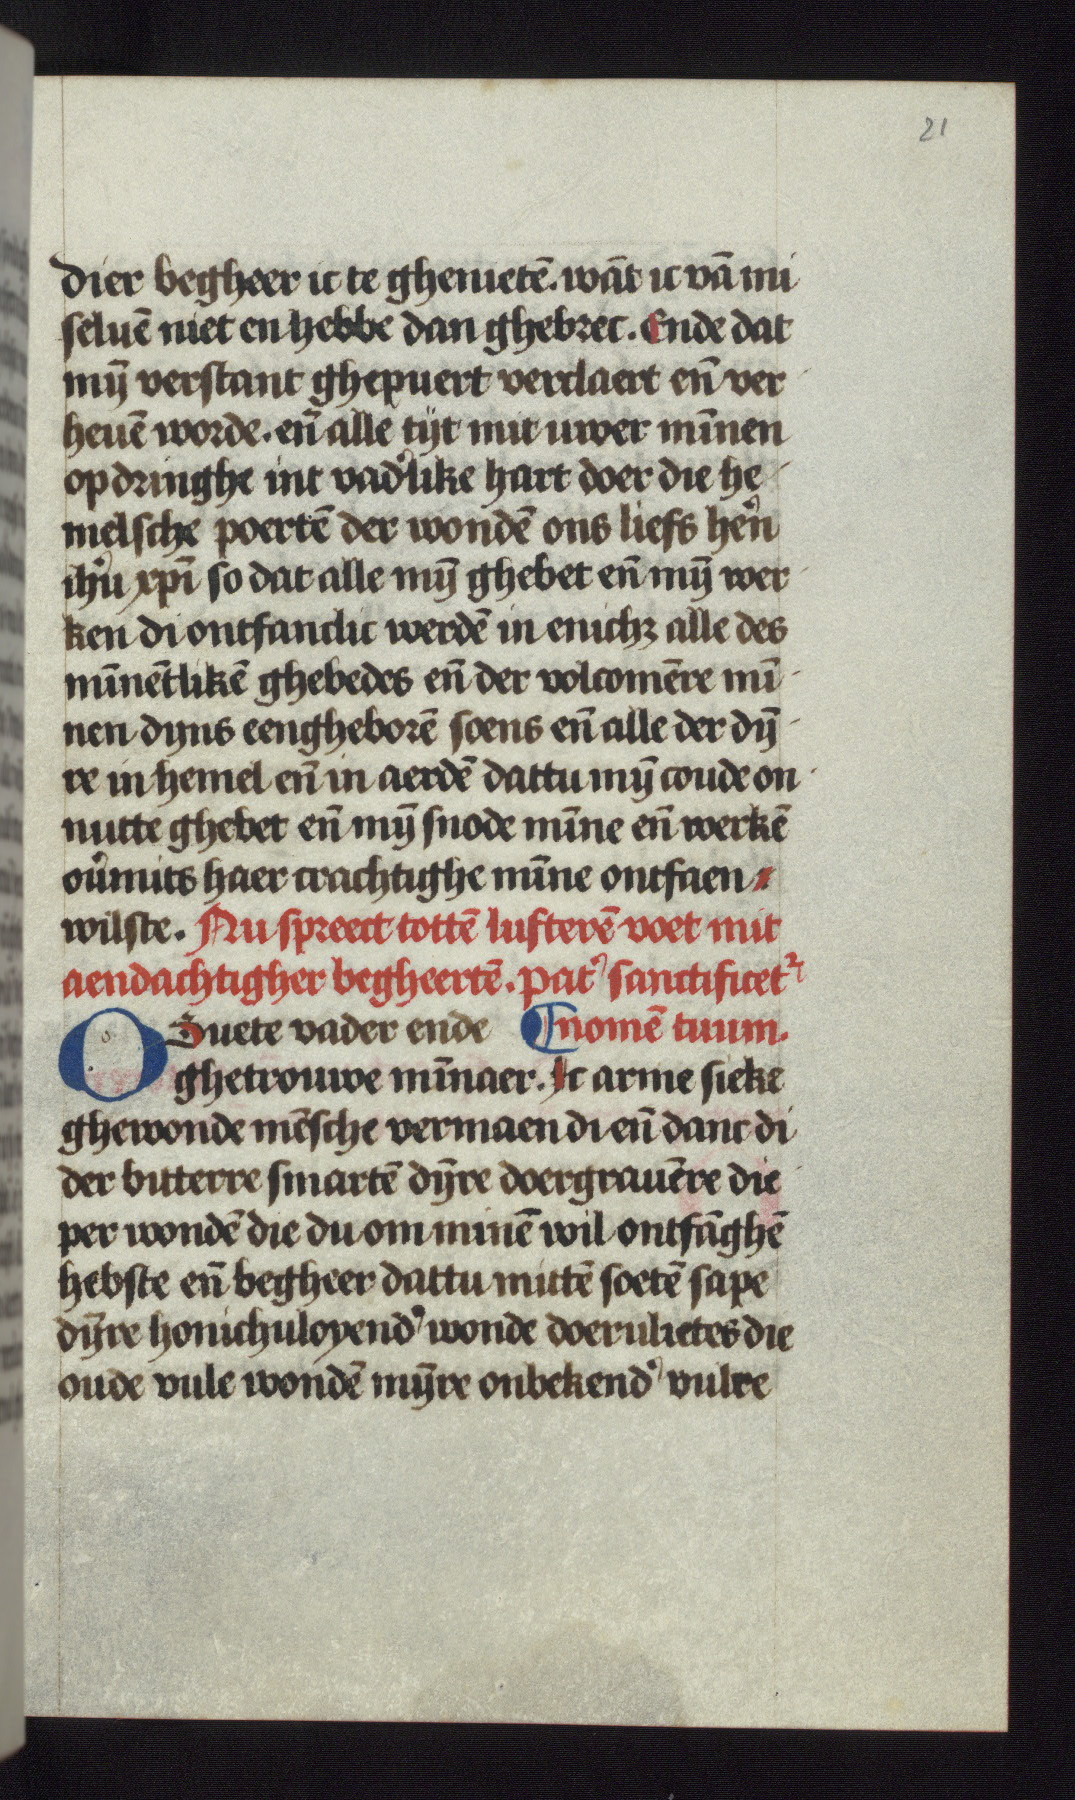 21
dier begheer ic te ghenietē. wāt ic vā mi
seluē niet en hebbe dan ghebrec. Ende dat
mȳ verstant ghepuert verclaert eñ ver
heuē worde. eñ alle tijt mit uwer mīnen
opdringhe int vad'like hart doer die he
melsche poertē der wondē ons liefs he'n
ih'u xp̄i so dat alle mȳ ghebet eñ mȳ wer
ken di ontfanclic werdē in enichꝫ alle des
mīnētlikē ghebedes eñ der volcomēre mī
nen dyns eengheborē soens eñ alle der dȳ
re in hemel eñ in aerdē dattu mȳ coude on
nutte ghebet eñ mȳ snode mīne eñ werkē
ou'mits haer crachtighe mīne ontfaen
wilste. Nu spreect tottē lufterē voet mit
aendachtigher begheertē. Pat' sanctificet'
O Suete vader ende ¶ nomē tuum.
ghetrouwe mīnaer. Ic arme sieke
ghewonde mēsche vermaen di eñ danc di
der bitterre smartē dȳre doergrauēre die
per wondē die du om minē wil ontfāghē
hebste eñ begheer dattu mittē soetē sape
dȳre honichuloyend' wonde doerulietes die
oude vule wondē mȳre onbekend' vulre